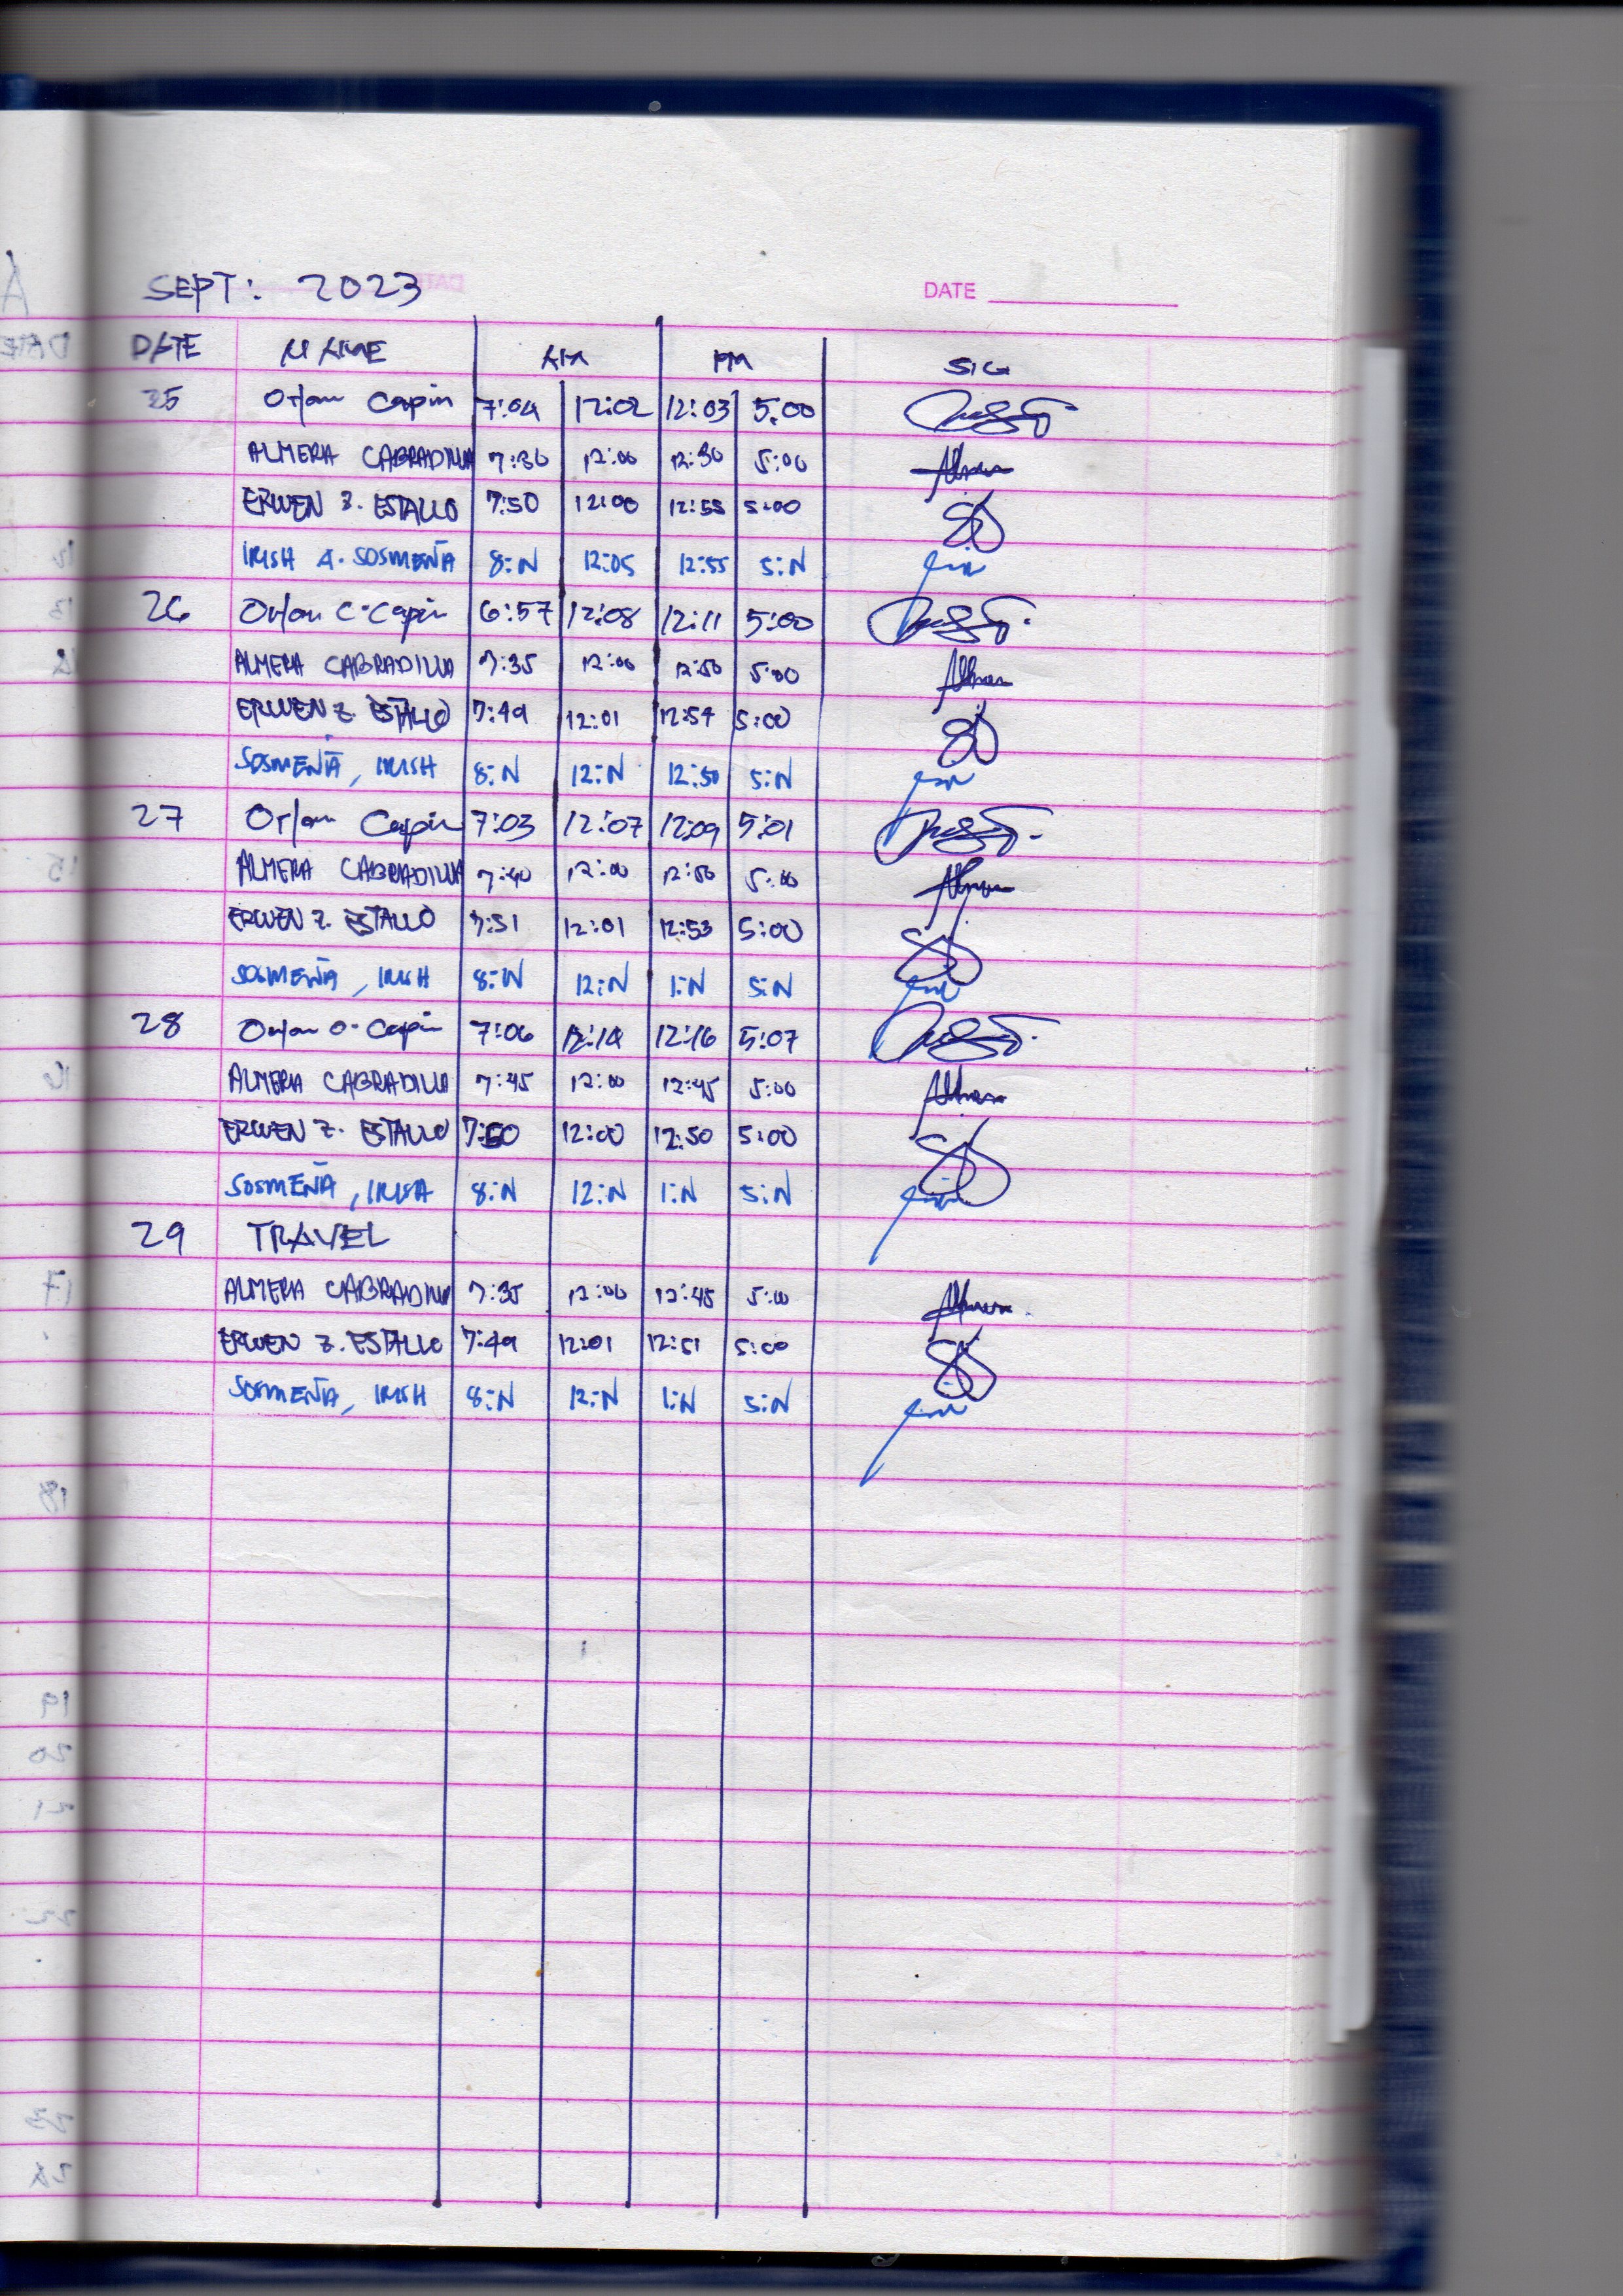 SEPT: 2023
DATE
DATE NAME AM PM SIG
25 Orlan Capin 7:04 12:02 12:03 5:00
ALMERA CABRADILLA 7:30 12:00 12:30 5:00
ERWEN Z. ESTALLO 7:50 12:00 12:55 5:00
IRISH A. SOSMEÑA 8:N 12:05 12:55 5:N
26 Orlan C. Capin 6:57 12:08 12:11 5:00
ALMERA CABRADILLA 7:35 12:00 12:50 5:00
ERWEN Z. ESTALLO 7:49 12:01 12:54 5:00
SOSMEÑA, IRISH 8:N 12:N 12:50 5:N
27 Orlan Capin 7:03 12:07 12:09 5:01
ALMERA CABRADILLA 7:40 12:00 12:50 5:00
ERWEN Z. ESTALLO 7:51 12:01 12:53 5:00
SOSMEÑA, IRISH 8:N 12:N 1:N 5:N
28 Orlan O. Capin 7:06 12:14 12:16 5:07
ALMERA CABRADILLA 7:45 12:00 12:45 5:00
ERWEN Z. ESTALLO 7:50 12:00 12:50 5:00
SOSMEÑA, IRISH 8:N 12:N 1:N 5:N
29 TRAVEL
ALMERA CABRADILLA 7:35 12:00 12:45 5:00
ERWEN Z. ESTALLO 7:49 12:01 12:51 5:00
SOSMEÑA, IRISH 8:N 12:N 1:N 5:N